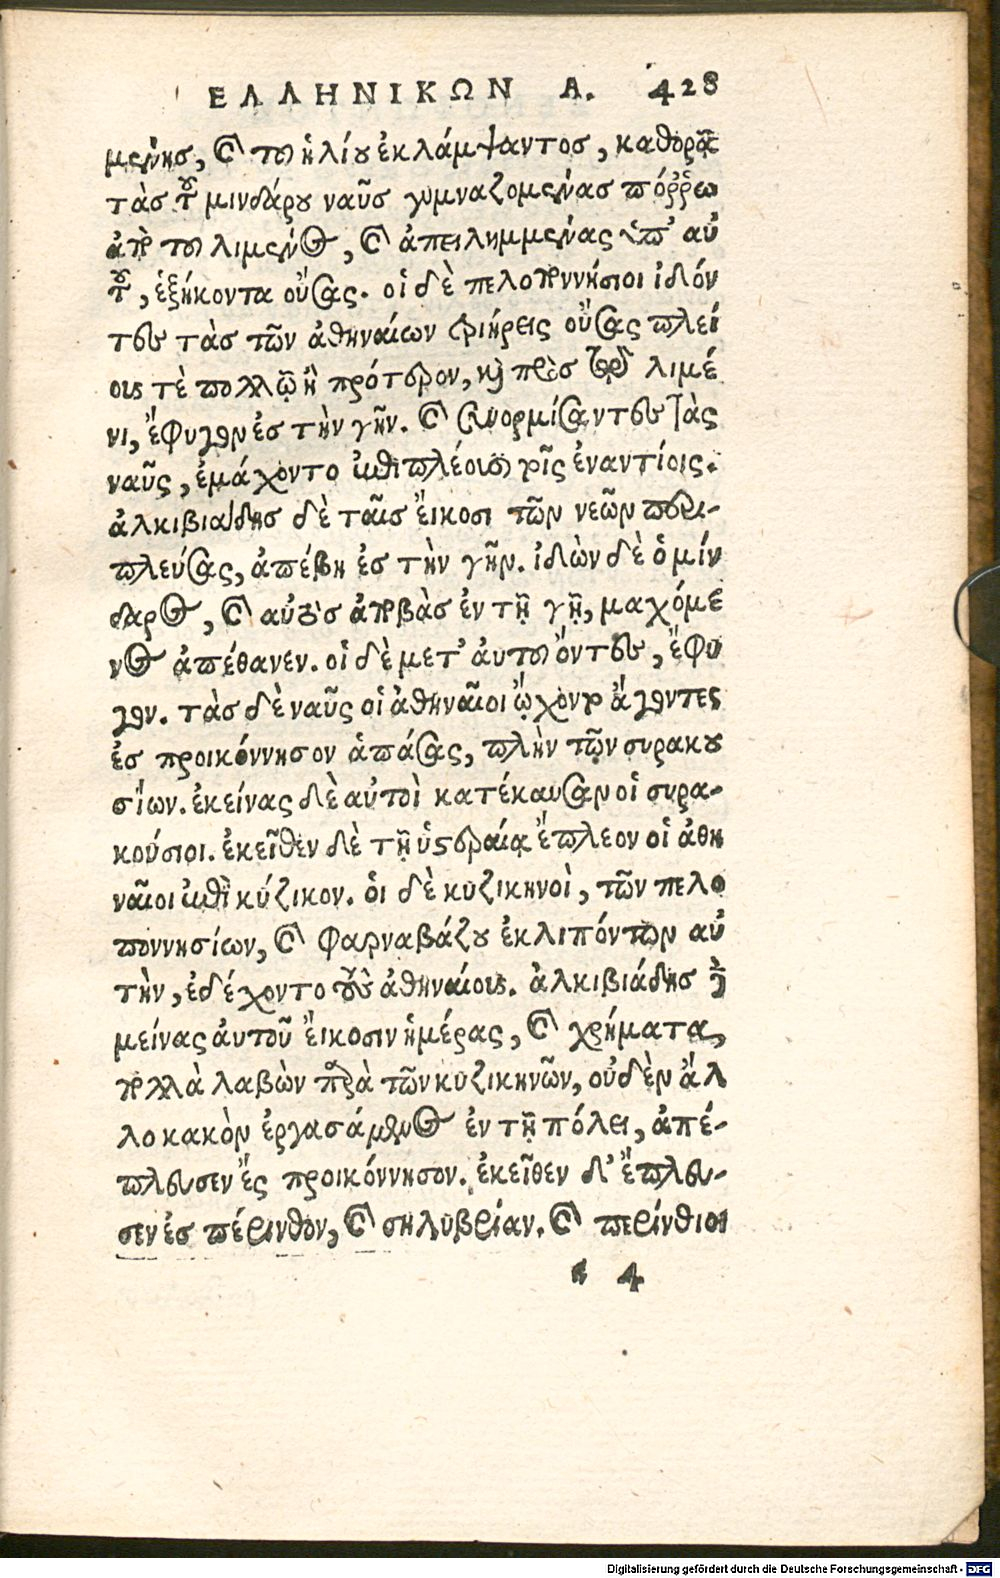 ΕΛΛΗΝΙΚΩΝ Α. 428
μένης, καὶ τοῦ ἡλίου ἐκλάμψαντος, καθορᾷ
τὰς τοῦ μινδάρου ναῦς γυμναζομένας πόῤῥω
ἀπὸ τοῦ λιμένος, καὶ ἀπειλημμένας ὑπ' αὐ
τοῦ, ἑξήκοντα οὔσας. οἱ δὲ πελοποννήσιοι ἰδόν
τες τὰς τῶν ἀθηναίων τριήρεις οὔσας πλεί
ους τὲ πολλῷ ἢ πρότερον, καὶ πρὸς τῷ λιμέ
νι, ἔφυγον ἐς τὴν γῆν. καὶ συνορμίσαντες τὰς
ναῦς, ἐμάχοντο ἐπιπλέουσι τοῖς ἐναντίοις.
ἀλκιβιάδης δὲ ταῖς εἴκοσι τῶν νεῶν περι-
πλεύσας, ἀπέβη ἐς τὴν γῆν. ἰδὼν δὲ ὁ μίν
δαρος, καὶ αὐτὸς ἀποβὰς ἐν τῇ γῇ, μαχόμε
νος ἀπέθανεν. οἱ δὲ μετ' αὐτοῦ ὄντες, ἔφυ
γον. τὰς δὲ ναῦς οἱ ἀθηναῖοι ᾤχοντο ἄγοντες
ἐς προικόννησον ἁπάσας, πλὴν τῶν συρακου
σίων. ἐκείνας δὲ αὐτοὶ κατέκαυσαν οἱ συρα-
κούσιοι. ἐκεῖθεν δὲ τῇ ὑστεραίᾳ ἔπλεον οἱ ἀθη
ναῖοι ἐπὶ κύζικον. οἱ δὲ κυζικηνοὶ, τῶν πελο
ποννησίων, καὶ φαρναβάζου ἐκλιπόντων αὐ
τὴν, ἐδέχοντο τοὺς ἀθηναίους. ἀλκιβιάδης δὲ
μείνας αὐτοῦ εἴκοσιν ἡμέρας, καὶ χρήματα,
πολλὰ λαβὼν παρὰ τῶν κυζικηνῶν, οὐδὲν ἄλ
λο κακὸν ἐργασάμενος ἐν τῇ πόλει, ἀπέ-
πλευσεν ἐς προικόννησον. ἐκεῖθεν δ' ἔπλευ-
σεν ἐς πέρινθον, καὶ σηλυβρίαν. καὶ περίνθιοι
4
Digitalisierung gefördert durch die Deutsche Forschungsgemeinschaft - DFG